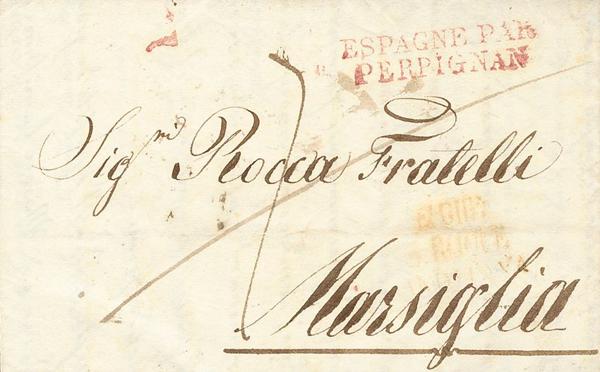 ESPAGNE PAR
PERPIGNAN
Sig.rⁱ Rocca Fratelli
Marsiglia